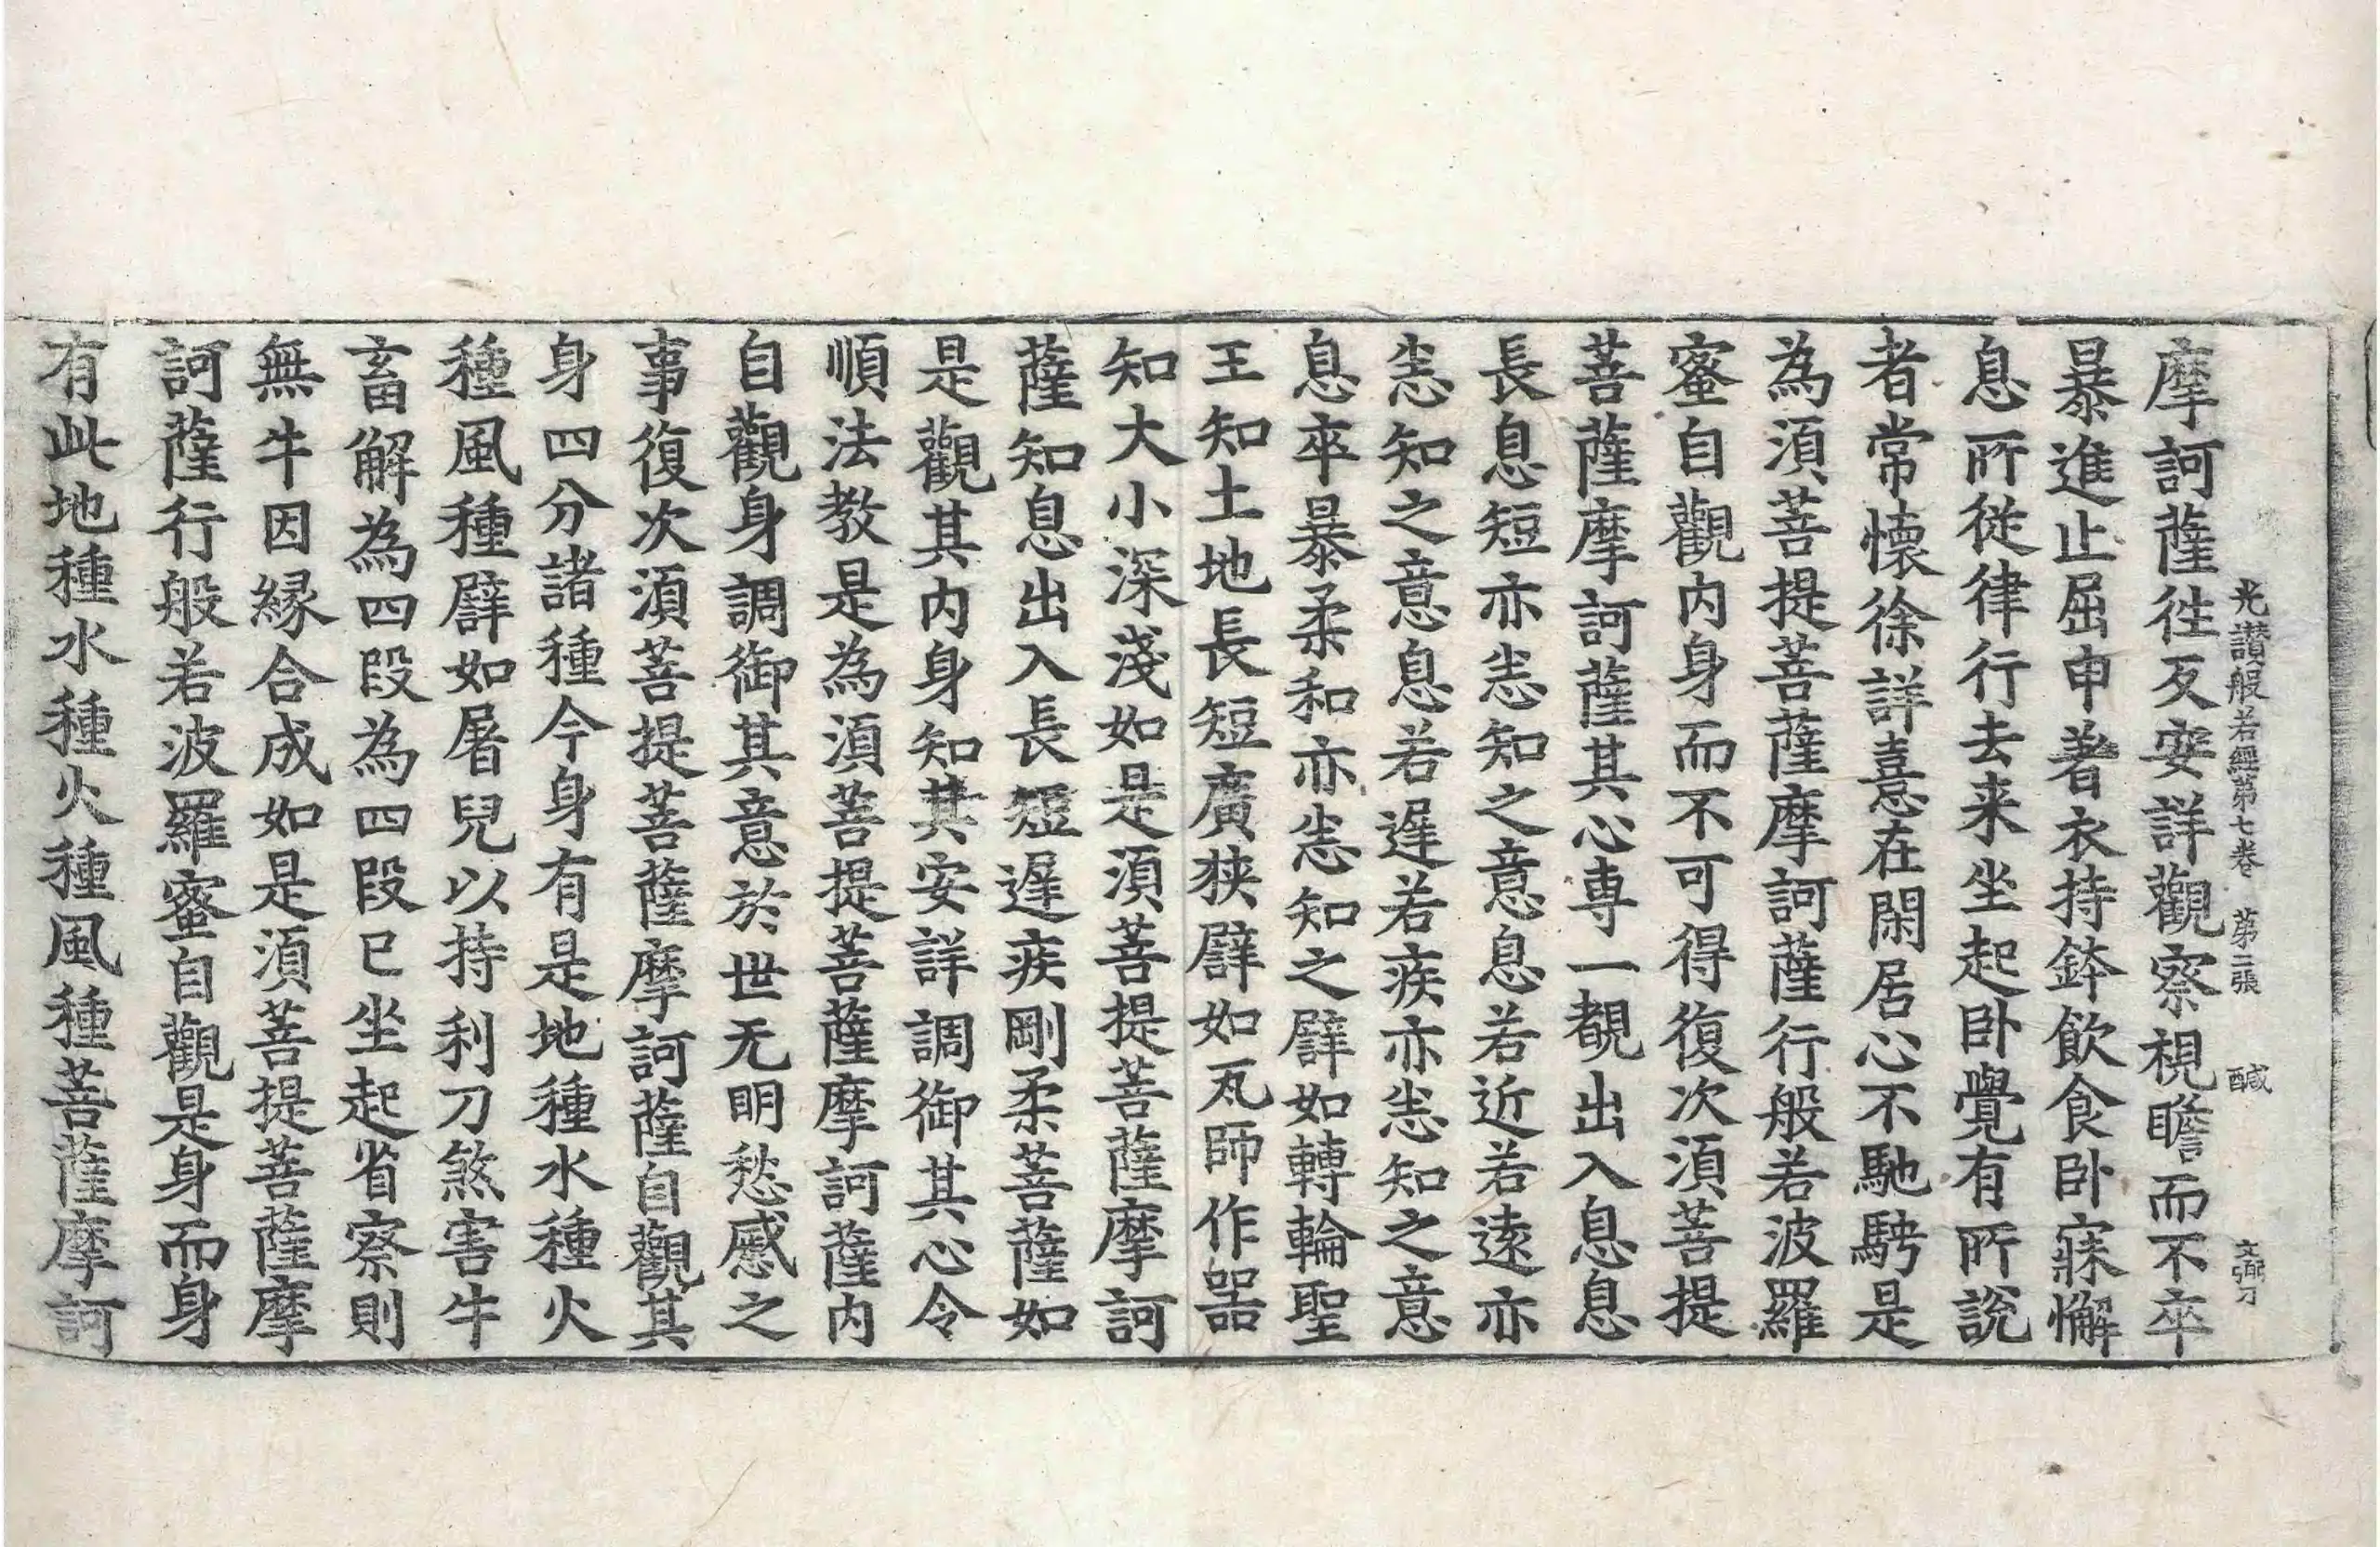 光讃般若經第七卷　第二張　醎　文弼刀
摩訶薩徃反安詳觀察視瞻而不卒
暴進止屈申著衣持鉢飲食卧寐懈
息所從律行行去来坐起卧覺有所說
者常懷徐詳憙在閑居心不馳騁是
為湏菩提菩薩摩訶薩行般若波羅
蜜自觀内身而不可得復次湏菩提
菩薩摩訶薩其心専一覩出入息息
長息短亦悉知之意息若近若遠亦
悉知之意息若遲若疾亦悉知之意
息卒暴柔和亦悉知之譬如轉輪聖
王知土地長短廣狭譬如瓦師作噐
知大小深淺如是湏菩提菩薩摩訶
薩知息出入長短遲疾剛柔菩薩如
是觀其内身知其安詳調御其心令
順法教是為湏菩提菩薩摩訶薩内
自觀身調御其意於世无明愁慼之
事復次湏菩提菩薩摩訶薩自觀其
身四分諸種今身有是地種水種火
種風種譬如屠兒以持利刀煞害牛
畜解為四段為四段已坐起省察則
無牛因緣合成如是湏菩提菩薩摩
訶薩行般若波羅蜜自觀是身而身
有此地種水種火種風種菩薩摩訶